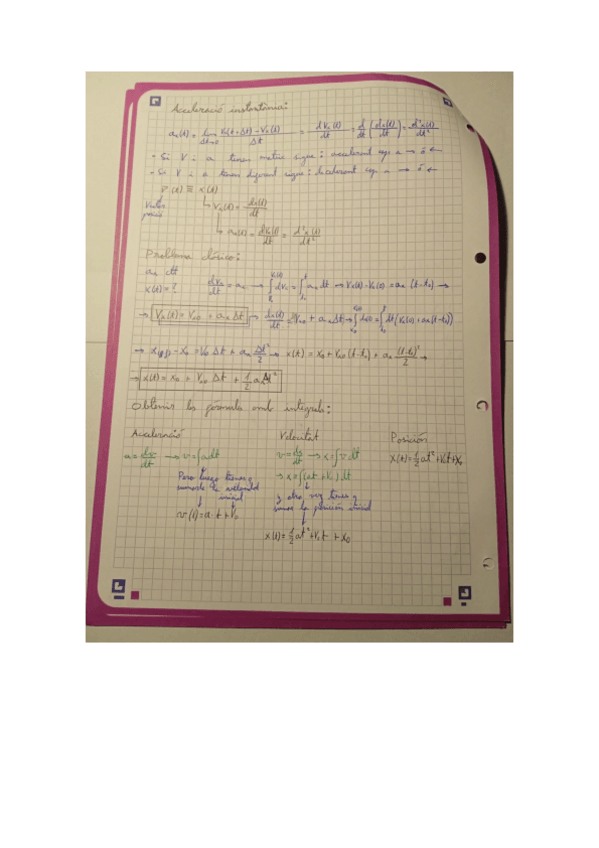 Acceleració instantània:
aₓ(t) = lim Δt→0 (Vₓ(t+Δt) - Vₓ(t))/Δt = dVₓ(t)/dt = d/dt (dx(t)/dt) = d²x(t)/dt²
- Si V i a tenen mateix signe: accelerant cap a → ó ←
- Si V i a tenen diferent signe: decelerant cap a → ó ←
r(t) ≡ x(t)
Vector posició
↳ Vₓ(t) = dx(t)/dt
↳ aₓ(t) = dVₓ(t)/dt = d²x(t)/dt²
Problema clàssic:
aₓ ctt
x(t) = ?
dVₓ/dt = aₓ → ∫ dVₓ = ∫ aₓ dt → Vₓ(t) - Vₓ(t₀) = aₓ (t - t₀) →
→ Vₓ(t) = Vₓ₀ + aₓ Δt → dx(t)/dt = Vₓ₀ + aₓ Δt → ∫ dx(t) = ∫ dt (Vₓ(0) + aₓ (t - t₀))
→ x(t) - x₀ = Vₓ₀ Δt + aₓ Δt²/2 → x(t) = x₀ + Vₓ₀ (t - t₀) + aₓ (t - t₀)²/2 →
→ x(t) = x₀ + Vₓ₀ Δt + 1/2 aₓ Δt²
Obtenir les fórmules amb integrals:
Acceleració
a = dv/dt → v = ∫ a dt
Pero luego tienes q
sumarle la velocidad
inicial
v(t) = a · t + V₀
Velocitat
v = dx/dt → x = ∫ v dt
→ x = ∫ (at + V₀) dt
y otra vez tienes q
sumar la posición inicial
x(t) = 1/2 at² + V₀t + x₀
Posición
x(t) = 1/2 at² + V₀t + x₀